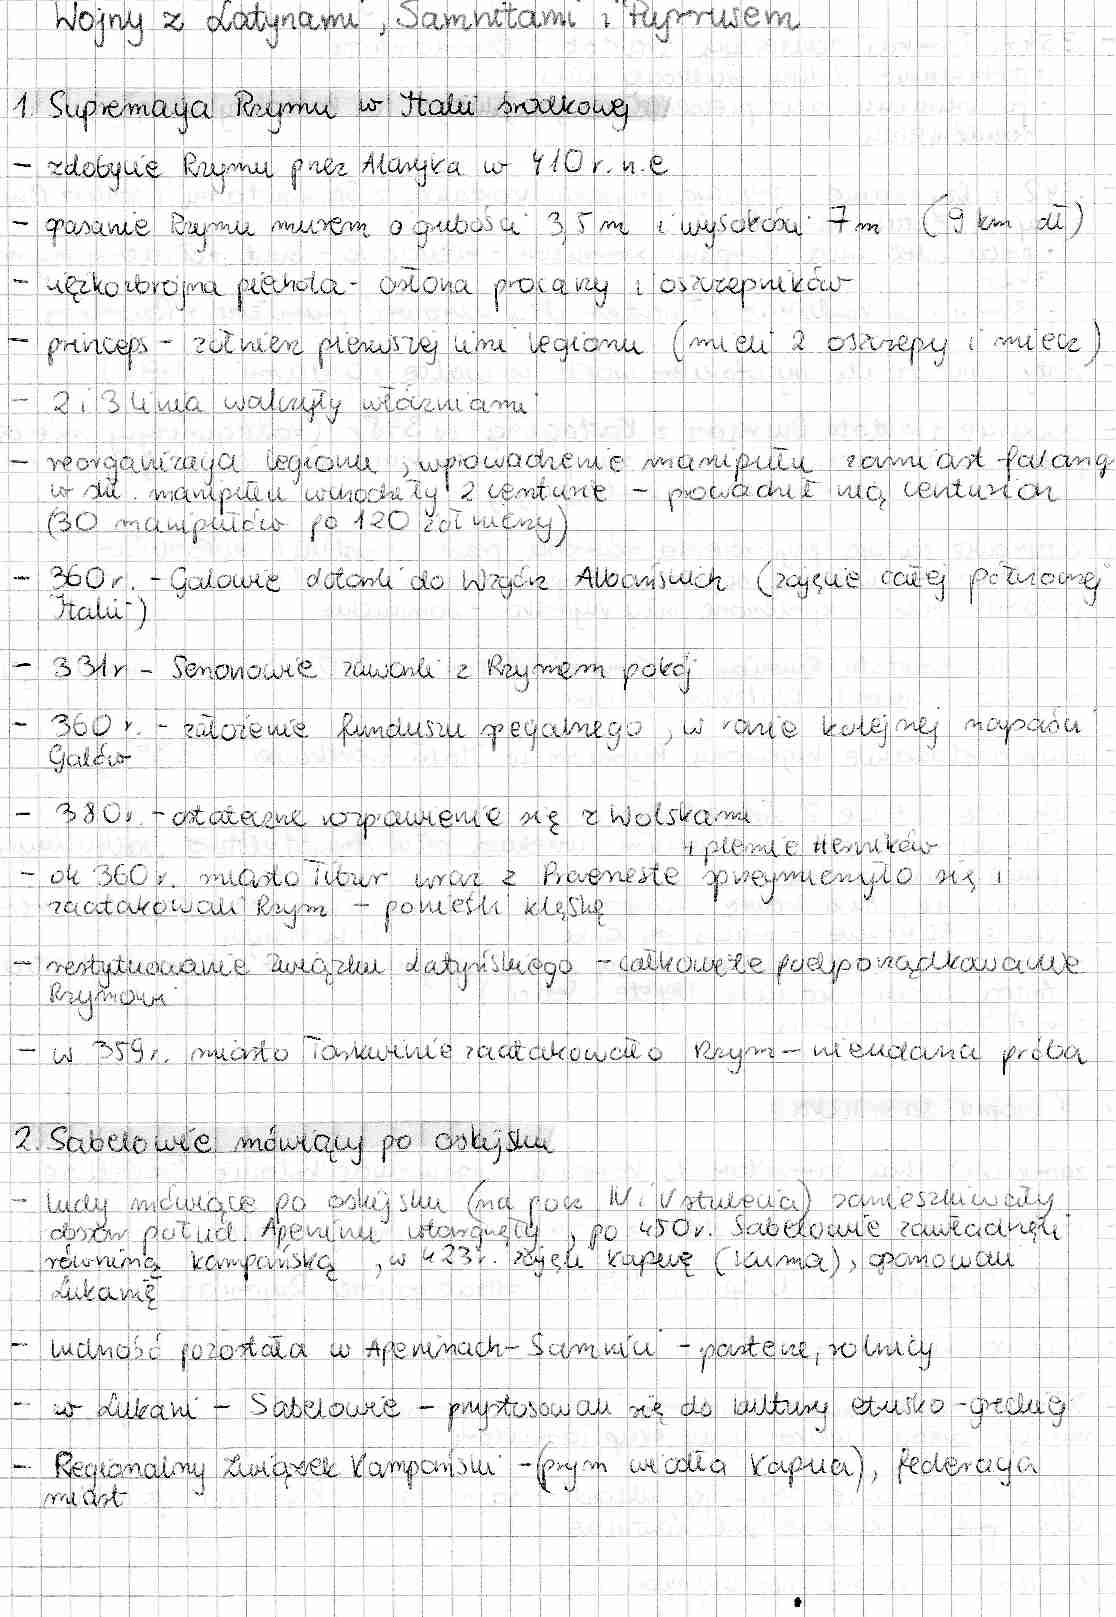 Wojny z Latynami, Samnitami i Pyrrusem
1. Supremacja Rzymu w Italii środkowej
- zdobycie Rzymu przez Alaryka w 410 r. n.e
- opasanie Rzymu murem o grubości 3,5 m i wysokości 7 m (9 km dł)
- ciężkozbrojna piechota - osłona procarzy i oszczepników
- princeps - żołnierz pierwszej linii legionu (mieli 2 oszczepy i miecz)
- 2 i 3 linia walczyły włóczniami
- reorganizacja legionu, wprowadzenie manipułu zamiast falang
w skł. manipułu wchodziły 2 centurie - prowadził nią centurion
(30 manipułów po 120 żołnierzy)
- 360 r. - Galowie dotarli do Wzgórz Albańskich (zajęcie całej północnej
Italii)
- 331r - Senonowie zawarli z Rzymem pokój
- 360 r. - założenie funduszu specjalnego, w razie kolejnej napaści
Galów
- 380r. - ostateczne rozprawienie się z Wolskami
i plemię Herników
- ok 360 r. miasto Tibur wraz z Praeneste sprzymierzyło się i
zaatakowali Rzym - ponieśli klęskę
- restytuowanie Związku Latyńskiego - całkowite podporządkowanie
Rzymowi
- w 359 r. miasto Tarkwinie zaatakowało Rzym - nieudana próba
2. Sabelowie mówiący po oskijsku
- ludy mówiące po oskijsku (na pocz IV i V stulecia) zamieszkiwały
obszar połud. Apeninu wtargnęły, po 450 r. Sabelowie zawładnęli
równiną kampańską, w 423 r. zajęli Kapuę (Kuma), opanowali
Lukanię
- ludność pozostała w Apeninach - Samnici - pasterze, rolnicy
- w Lukanii - Sabelowie - przystosowali się do kultury etrusko-greckiej
- Regionalny Związek Kampański - (prym wiodła Kapua), federacja
miast